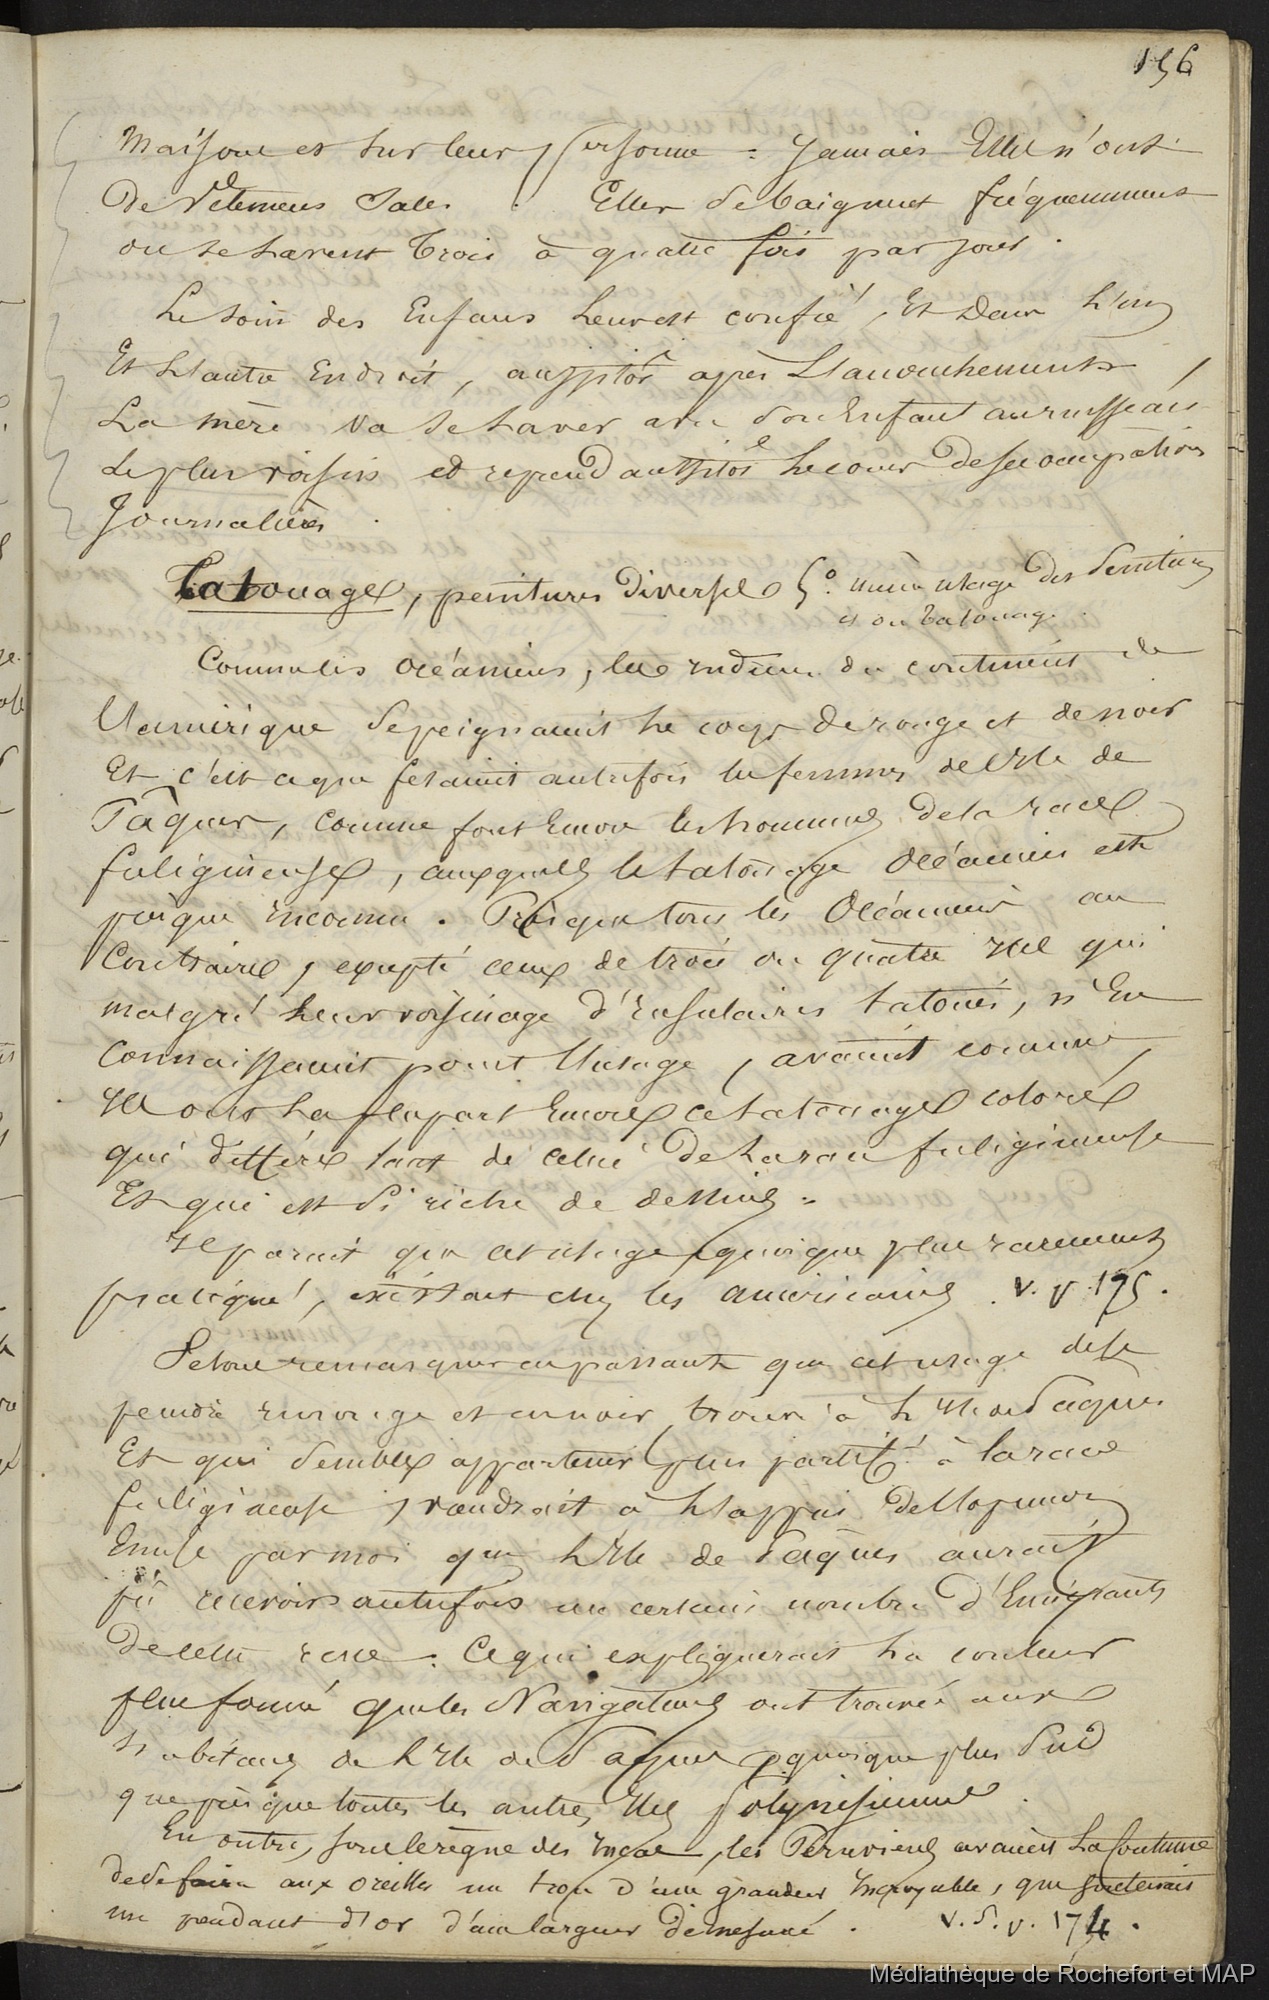 156
maisons et sur leur personne : Jamais Elles n'ont
de vêtemens Sales. Elles se baignent fréquemment
ou se lavent trois à quatre fois par jour.
Le soin des Enfans leur est confié, Et dans L'un
Et L'autre Endroit, aussitôt après L'accouchement,
La mère va se laver avec son Enfant au ruisseau
le plus voisin et reprend aussitôt le cours de ses occupations
Journalières.
Tatouage, peintures diverses 5o. même usage des Peintures
et du tatouage.
Comme les Océaniens, les Indiens du continent de
L'amérique se peignaient le corps de rouge et de noir
Et c'est ce que fesaient autrefois les femmes de l'Ile de
Pâques, comme font Encore les hommes de la race
fuligineuse, auxquels le tatouage Océanien est
presque inconnu. Presque tous les Océaniens au
Contraire, excepté ceux de trois ou quatre Iles qui
malgré leur voisinage d'Insulaires tatoués, n'En
Connaissaient point l'usage, avaient comme,
Ils ont La plupart Encore ce tatouage coloré
qui diffère tant de celui de La race fuligineuse
Et qui est si riche de dessins.
Il parait que cet usage, quoique plus rarement
pratiqué, existait chez les américains. v. p. 175.
Je vous remarquer en passant que cet usage de se
peindre en rouge et en noir, trouvé à L'Ile de Pâques
Et qui semble appartenir plus partic.t à la race
fuligineuse, viendrait à L'appui de L'opinion
Emise par moi que L'Ile de Pâques aurait
pû recevoir autrefois un certain nombre d'Emigrants
de cette race. Ce qui expliquerait La couleur
plus foncé que les Navigateurs ont trouvé aux
habitans de L'Ile de Pâques, quoique plus Sud
que presque toutes les autres Iles polynésiennes.
En outre, sous le règne des Incas, les Péruviens avaient La Coutume
de se faire aux oreilles un trou d'une grandeur Incroyable, que soutenait
un pendant d'or d'une largeur démesuré. v. s. p. 174.
Médiathèque de Rochefort et MAP